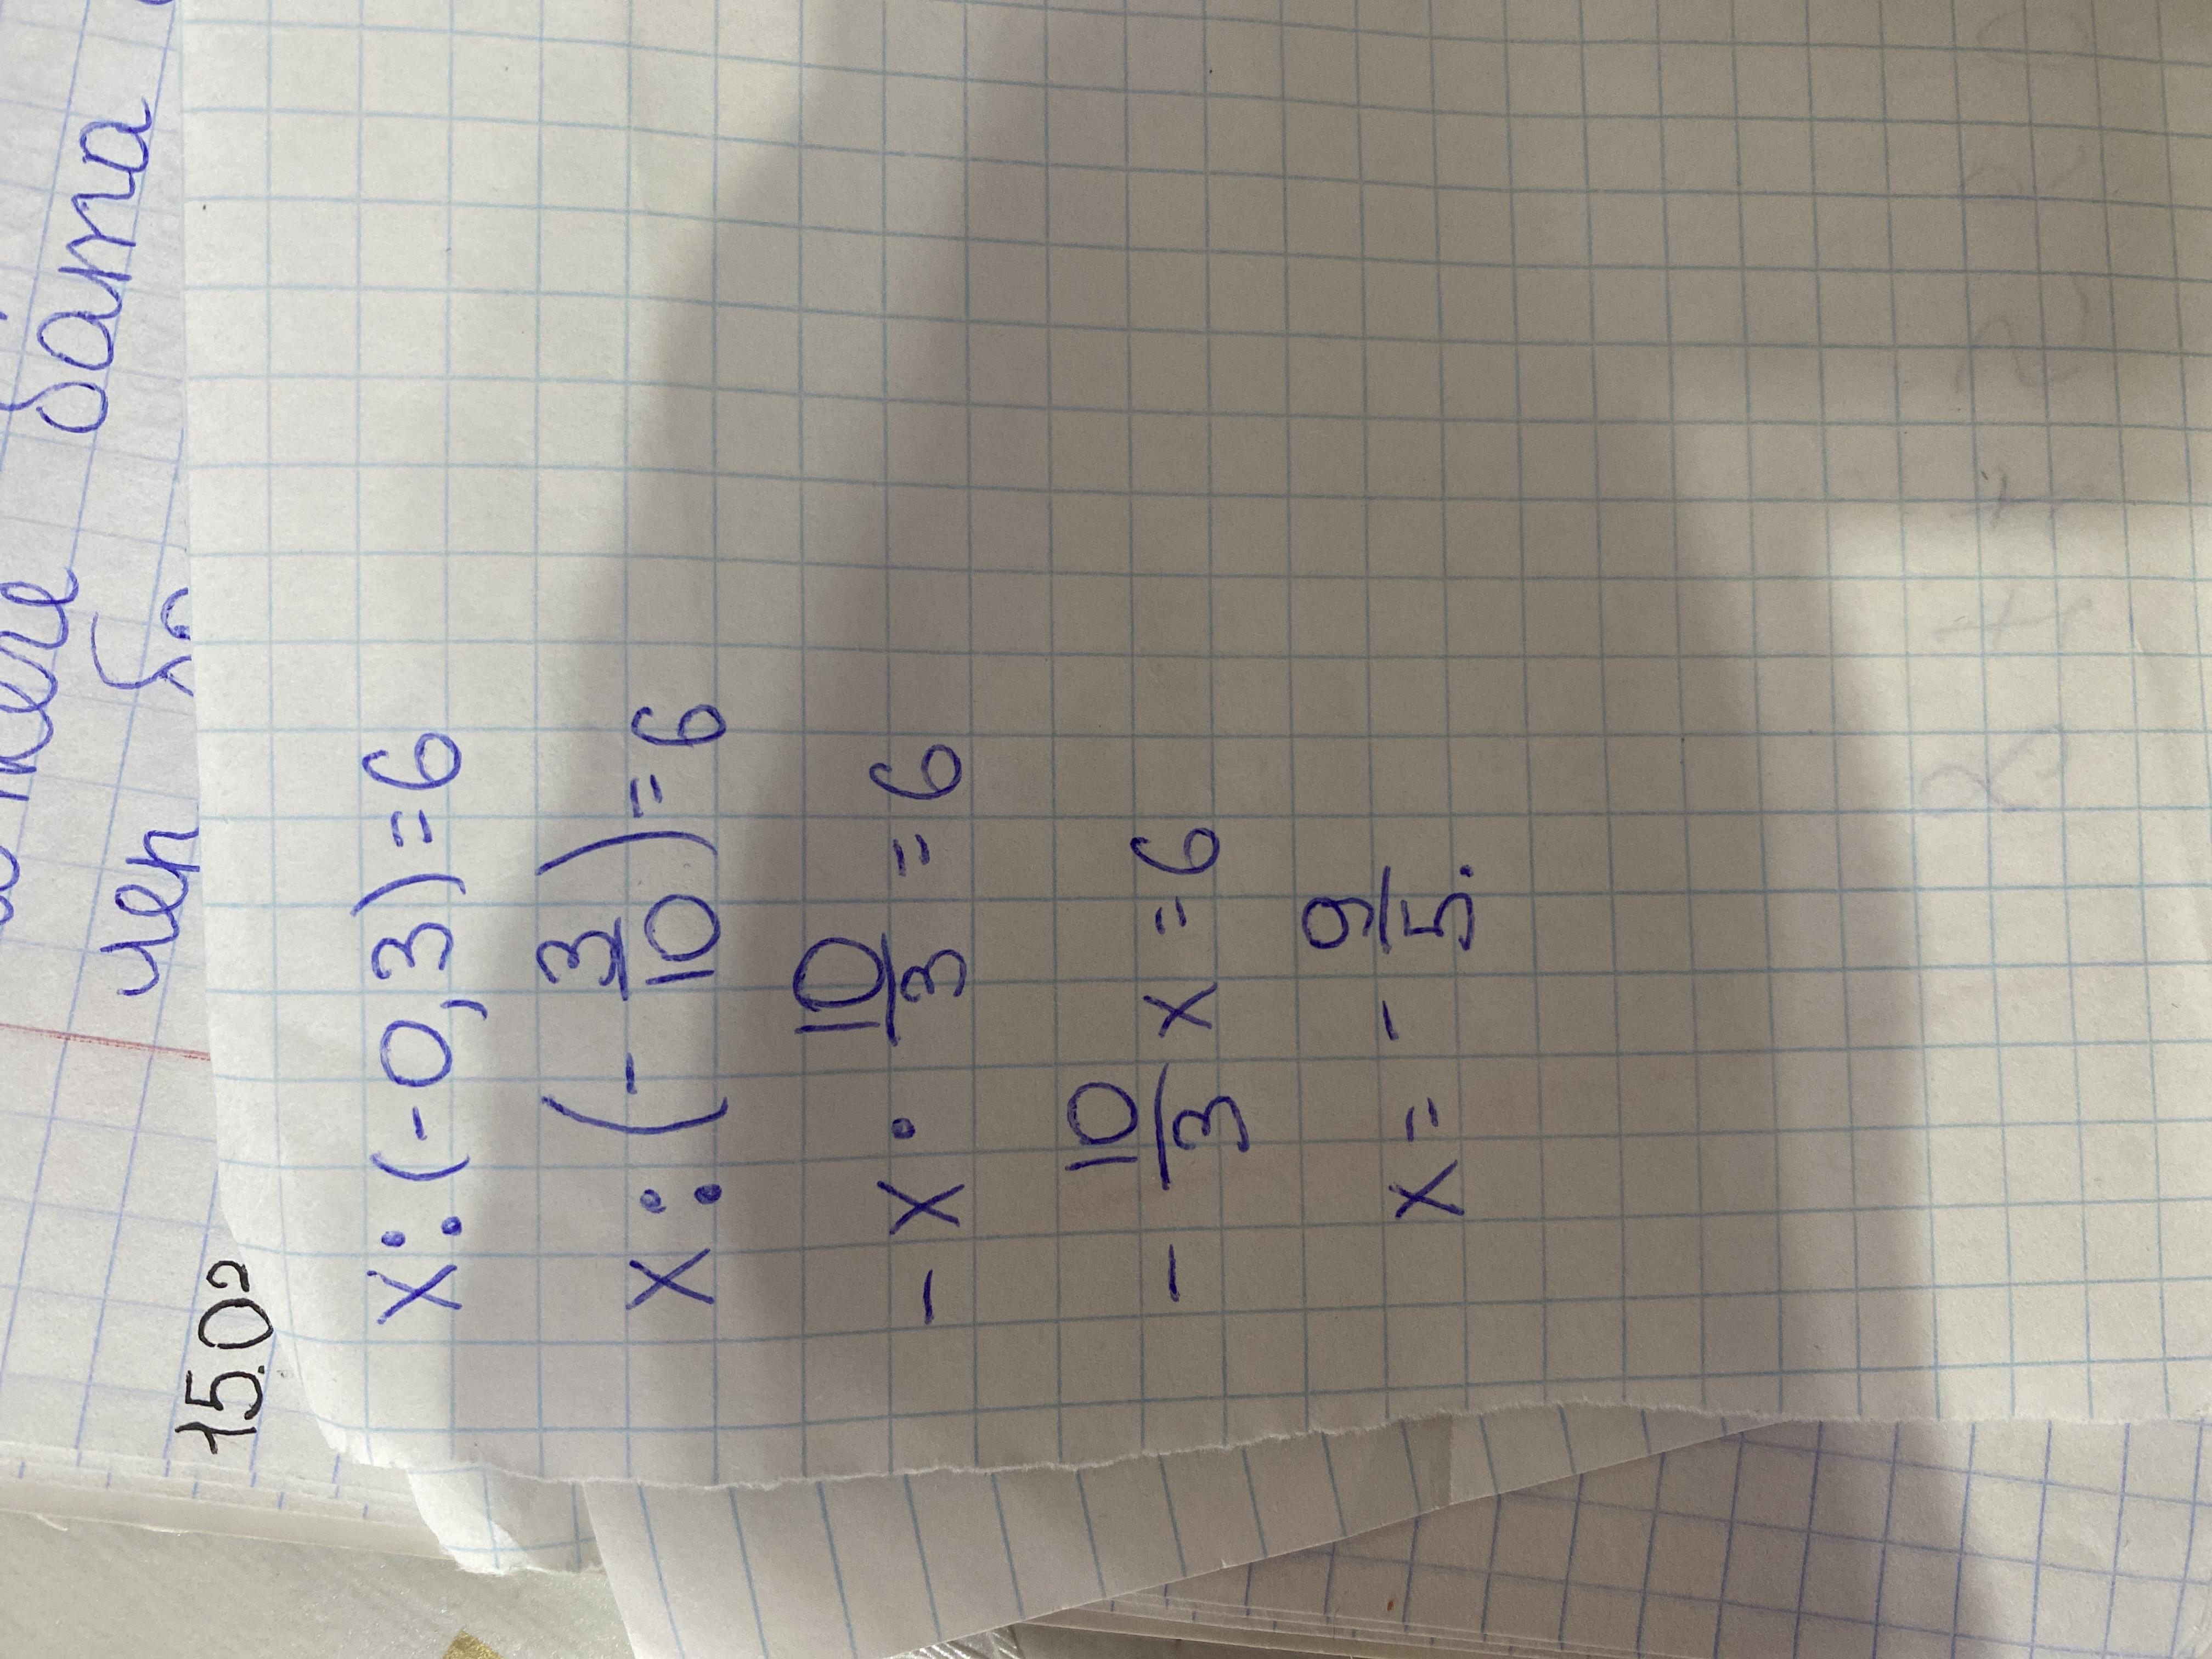 бата
чен
15.02
x:(-0,3)=6
x:(-3/10)=6
-x·10/3=6
-10/3x=6
x=-9/5.